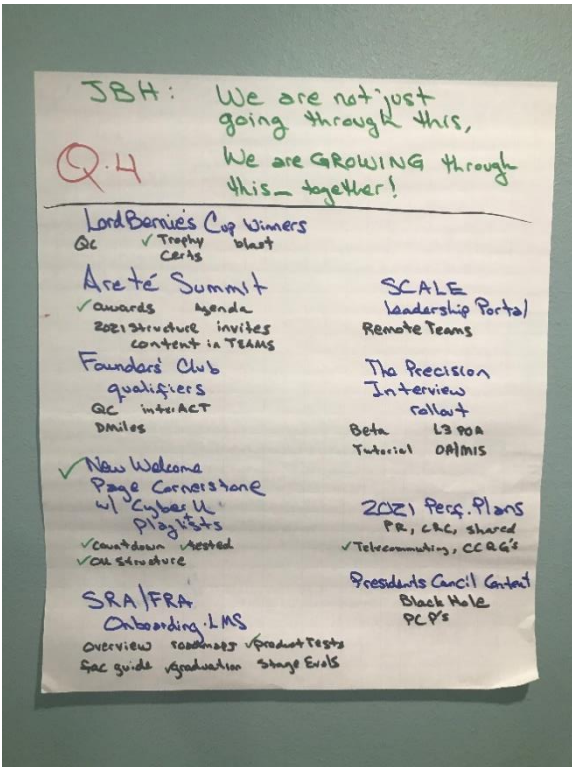 JBH: We are not just
going through this,
Q.4
We are GROWING through
this - together!
Lord Bernie's Cup Winners
QC ✓ Trophy blast
Certs
Areté Summit
✓ awards Agenda
2021 Structure invites
content in TEAMS
Founders' Club
qualifiers
QC interACT
DMiles
✓ New Welcome
Page Cornerstone
w/ Cyber U
Playlists
✓ Countdown ✓ tested
✓ OU Structure
SRA/FRA
Onboarding-LMS
Overview roadmaps ✓ Product Tests
fac guide ✓ graduation Stage Evals
SCALE
Leadership Portal
Remote Teams
The Precision
Interview
rollout
Beta L3 POA
Tutorial OA/MIS
2021 Perf. Plans
PR, CRC, shared
✓ Telecommuting, CCQG's
Presidents Concil Content
Black Hole
PCP's